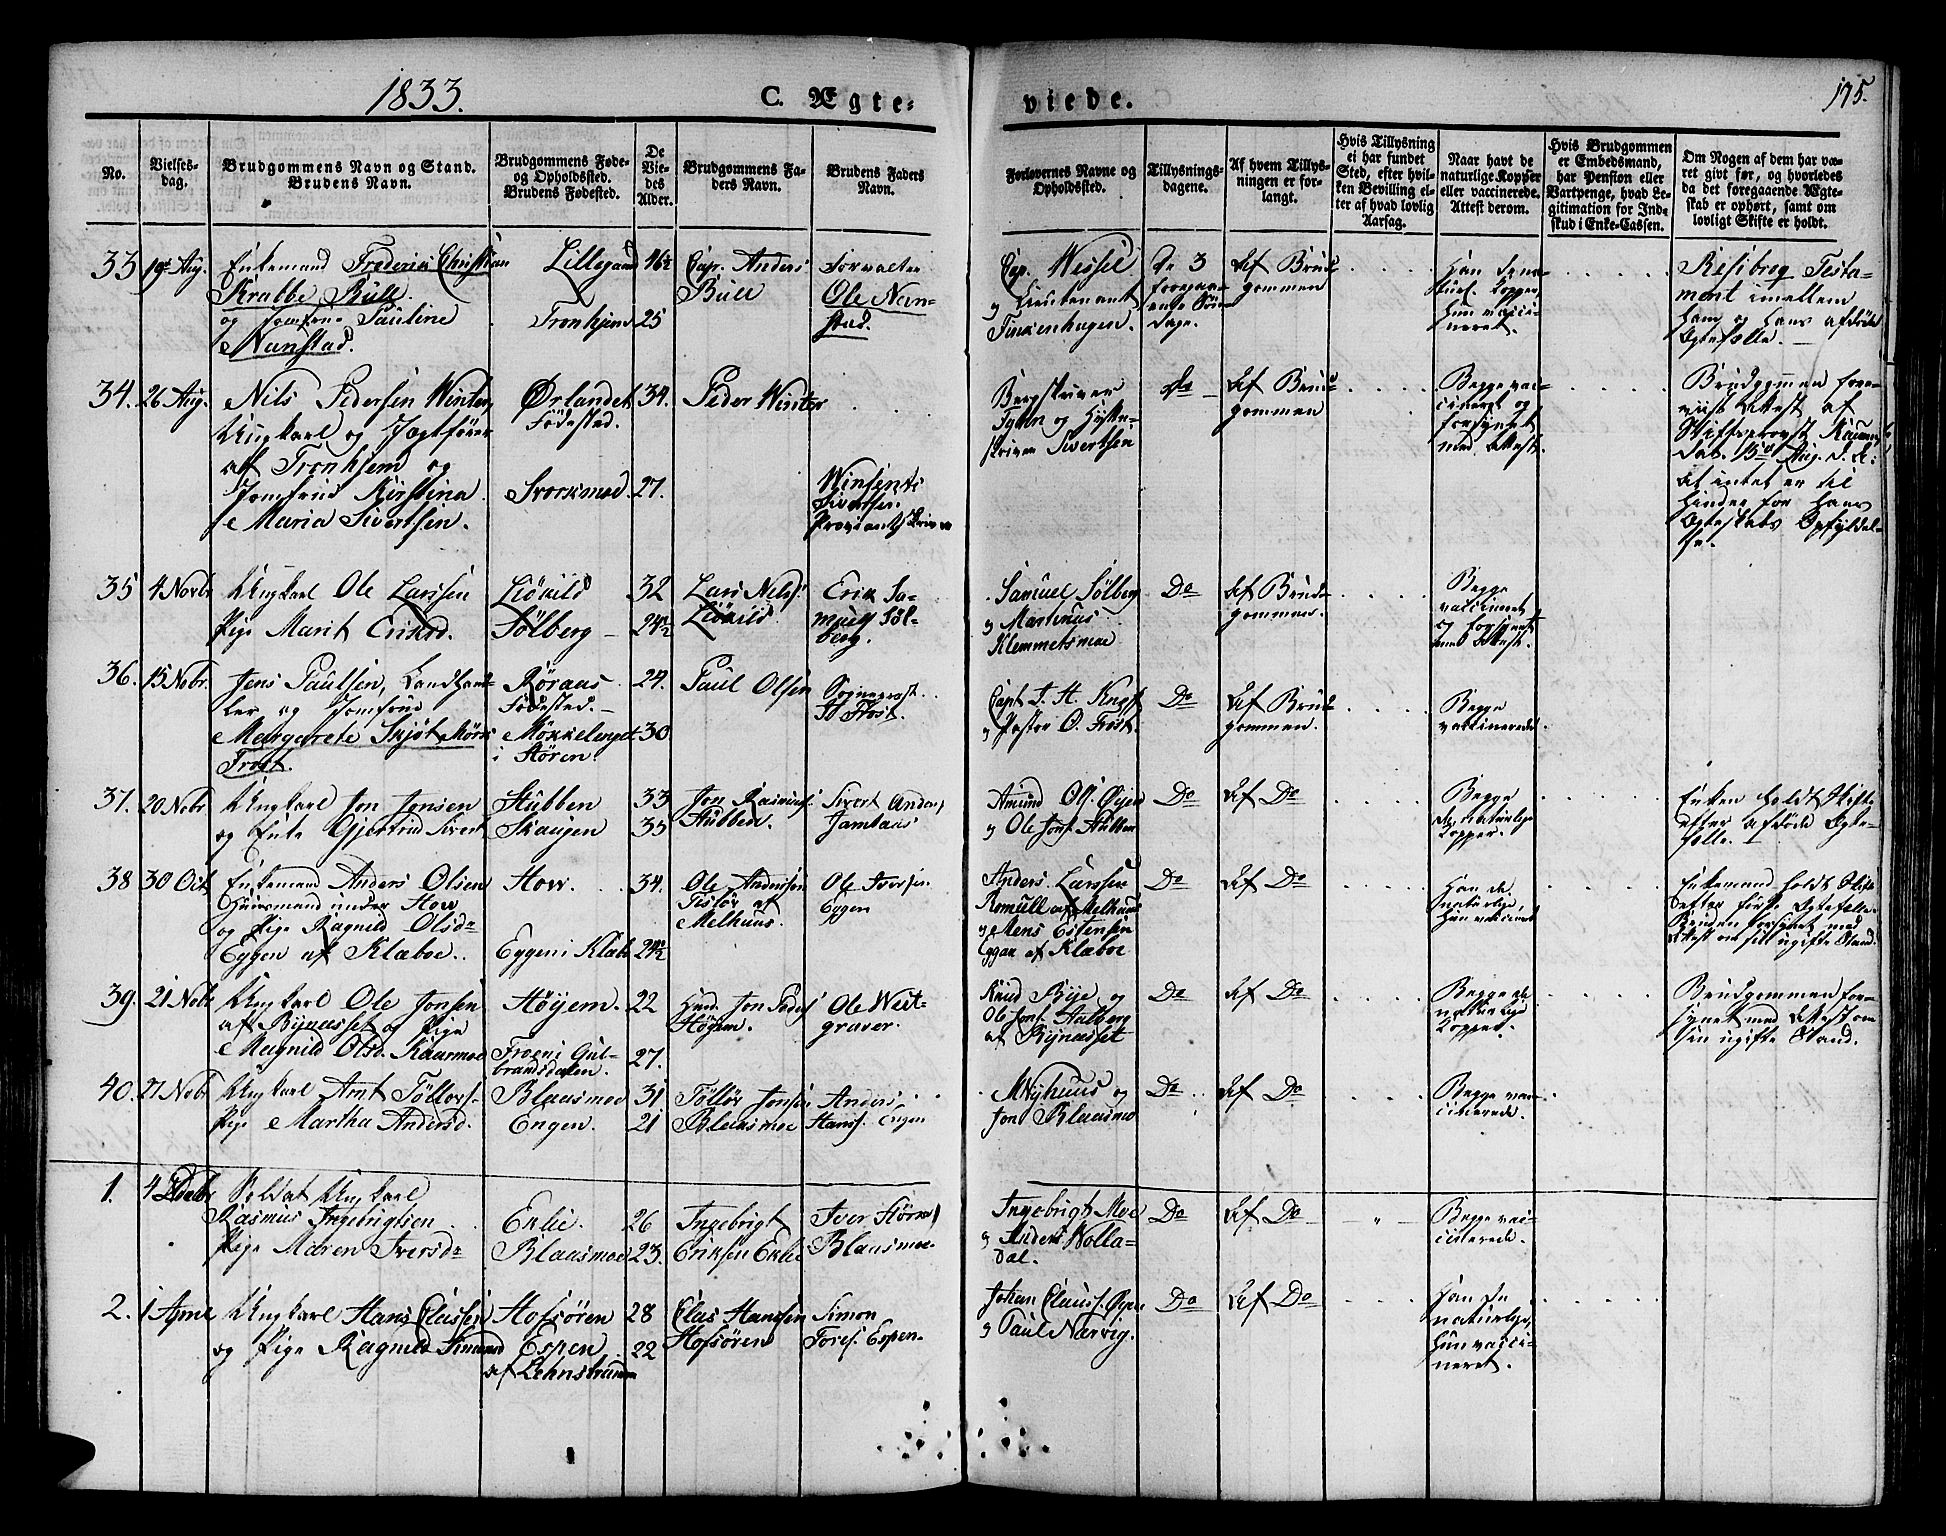 1833.
C. Ægte=
viede.
175.
No.
Vielses-
dag.
Brudgommens Navn og Stand.
Brudens Navn.
Brudgommens Føde-
og Opholdssted.
Brudens Fødested.
De
Vie-
des
Alder.
Brudgommens Fa-
ders Navn.
Brudens Faders
Navn.
Forlovernes Navne og
Opholdssted.
Tillysnings-
dagene.
Af hvem Tillys-
ningen er for-
langt.
Hvis Tillysning
ei har fundet
Sted, efter hvil-
ken Bevilling el-
ler af hvad lovlig
Aarsag.
Naar havt de
naturlige Kopper
eller vaccinerede.
Attest derom.
Hvis Brudgommen
er Embedsmand,
har Pension eller
Vartpenge, hvad Le-
gitimation for Ind-
skud i Enke-Cassen.
Om Nogen af dem har væ-
ret givt før, og hvorledes
da det foregaaende Ægte-
skab er ophørt, samt om
lovligt Skifte er holdt.
33
19de Aug.
Enkemand Frederik Christian
Krabbe Bull
og Jomfrue Pauline
Nanstad.
Lillegaard
Tronhjem
46½
25
Cap. Anders
Bull
Forvalter
Ole Nan-
stad.
Cap. Wessel
og Lieutenant
Tinkenhagen.
De 3
foregaa-
ende Søn-
dage.
Af Brud-
gommen
Han de na-
turl. Kopper,
hun vacci-
neret.
Resibrog Testa-
ment imellem
ham og hans afdøde
Ægtefælle.
34.
26 Aug.
Nils Pedersen Winter,
Ungkarl og Jægtfører
af Tronhjem og
Jomfrue Kirstina
Maria Sivertsen.
Ørlandet
Fødested.
Svorkmoe.
34.
27.
Peder Winter
Winsents
Sivertsen
Proviantskriver
Bergskriver
og Hytte-
skriver Sivertsen
Do
Af Brud-
gommen
Begge vac-
cineret og
forsynet
med Attest.
Brudgommen fore-
viist Attest af
Stiftsprovst
dat. 15de Aug. d. A:
at intet er til
Hinder for hans
Ægteskabs Opfyldel-
se.
35
4 Novbr
Ungkarl Ole Larssen
Pige Marit Eriksd.
Liøkild
Sølberg
32
24½
Lars Nelss.
Liøkild
Erik Sa-
muels Søl-
berg.
Samuel Sølberg
og Martinus
Klemmetsmoe
Do
Af Brud-
gommen.
Begge
vaccinerede
og forsynet
med Attest.
36.
15 Nobr.
Jens Paulsen, Landhand-
ler og Jomfrue
Margarete Skjøt Mørk
Frost.
Røraas
Fødested.
Møkkelenget
i Støren
24.
30
Paul Olsen
Sogneprest
H Frost.
Capt. J. H. Knoff
og Pastor O. Frost.
Do
Af Brud-
gommen.
Begge
vaccinerede.
37.
20 Nobr
Ungkarl Jon Jonsen
og Enke Gjertrud Sivert
Stubben
Skaugen
33
35
Jon Rasmuss.
Stubben.
Sivert Anders.
Jamtaas
Amund Ols. Øyen
og Ole Jons. Stubben
Do
Af Do
Begge
de naturlige
Kopper.
Enken holdt Skifte
efter afdøde Ægte-
fælle.
38
30 Oct
Enkemand Anders Olsen
Huusmand under How
og Pige Ragnild Olsdr
Eggen af Klæboe.
How
Eggen i Klæb
34.
24½
Ole Andersen
af
Melhuus.
Ole Iversen
Eggen
Anders Larssen
Romull af Melhuus
og Mens Estensen
Eggan af Klæboe
Do
Af Do
Han de
naturlige,
hun vaccineret
Enkemand holdt Skifte
efter første Ægtefælle.
Bruden forsynet med
Attest om sin ugifte Stand.
39.
21 Nobr
Ungkarl Ole Jonsen
af Bynæsset og Pige
Magnild Olsd. Kaarmoe
Høyem.
Froen i Gul-
brandsdalen.
22
27.
Huusm. Jon Peders.
Høyem.
Ole Weit-
graver.
Knud Bye og
Ole Jons. Aalberg
af Bynæsset
Do
Af Do
Begge de
naturlige
Kopper.
Brudgommen for-
synet med Attest om
sin ugifte Stand.
40.
27 Nobr
Ungkarl Arnt Tøllevs.
Pige Martha Andersd.
Blaasmoe
Engen.
31
21
Tølløv Jonsen
Blaasmoe
Anders
Hanss. Engen
M Nyhuus og
Jon Blaasmo
Do
Af Do
Begge vac-
cinerede.
1.
4 Decbr
Soldat Ungkarl
Rasmus Ingebrigtsen
Pige Maren Iversdr
Eklie.
Blaasmoe
26
23.
Ingebrigt
Eriksen Eklie
Iver Størens
Blaasmoe.
Ingebrigt Moe
og Anders Wolla-
dal.
Do
Af Do
Begge vac-
cinerede.
2.
1 Apr
Ungkarl Hans Clausen
og Pige Ragnild Simonsd
Hofsøren
Espen
af Lehnstranden
28
22
Clas Hanssen
Hofsøren
Simon
Tores. Espen.
Johan Clauss. Øyen
og Paul Nærvig.
Do
Af Do
Han de
naturlige,
hun vacci-
neret.